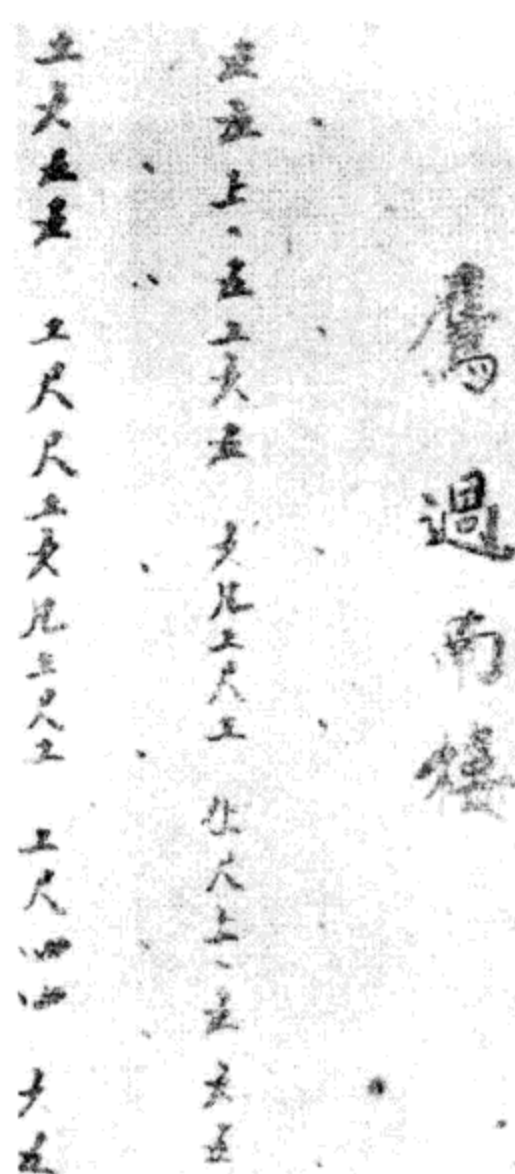 鴈過南樓
五五上、五工六五 六凡工尺工 尺上、五六五
工六五五 工尺尺工六凡工尺工 工尺四四 六五